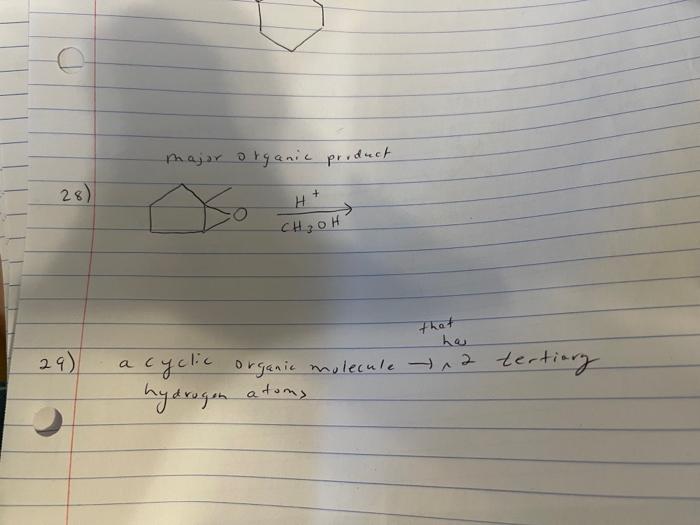 major organic product
28)
O
H+
CH3OH
that
has
29) a cyclic organic molecule → ^ 2 tertiary
hydrogen atoms